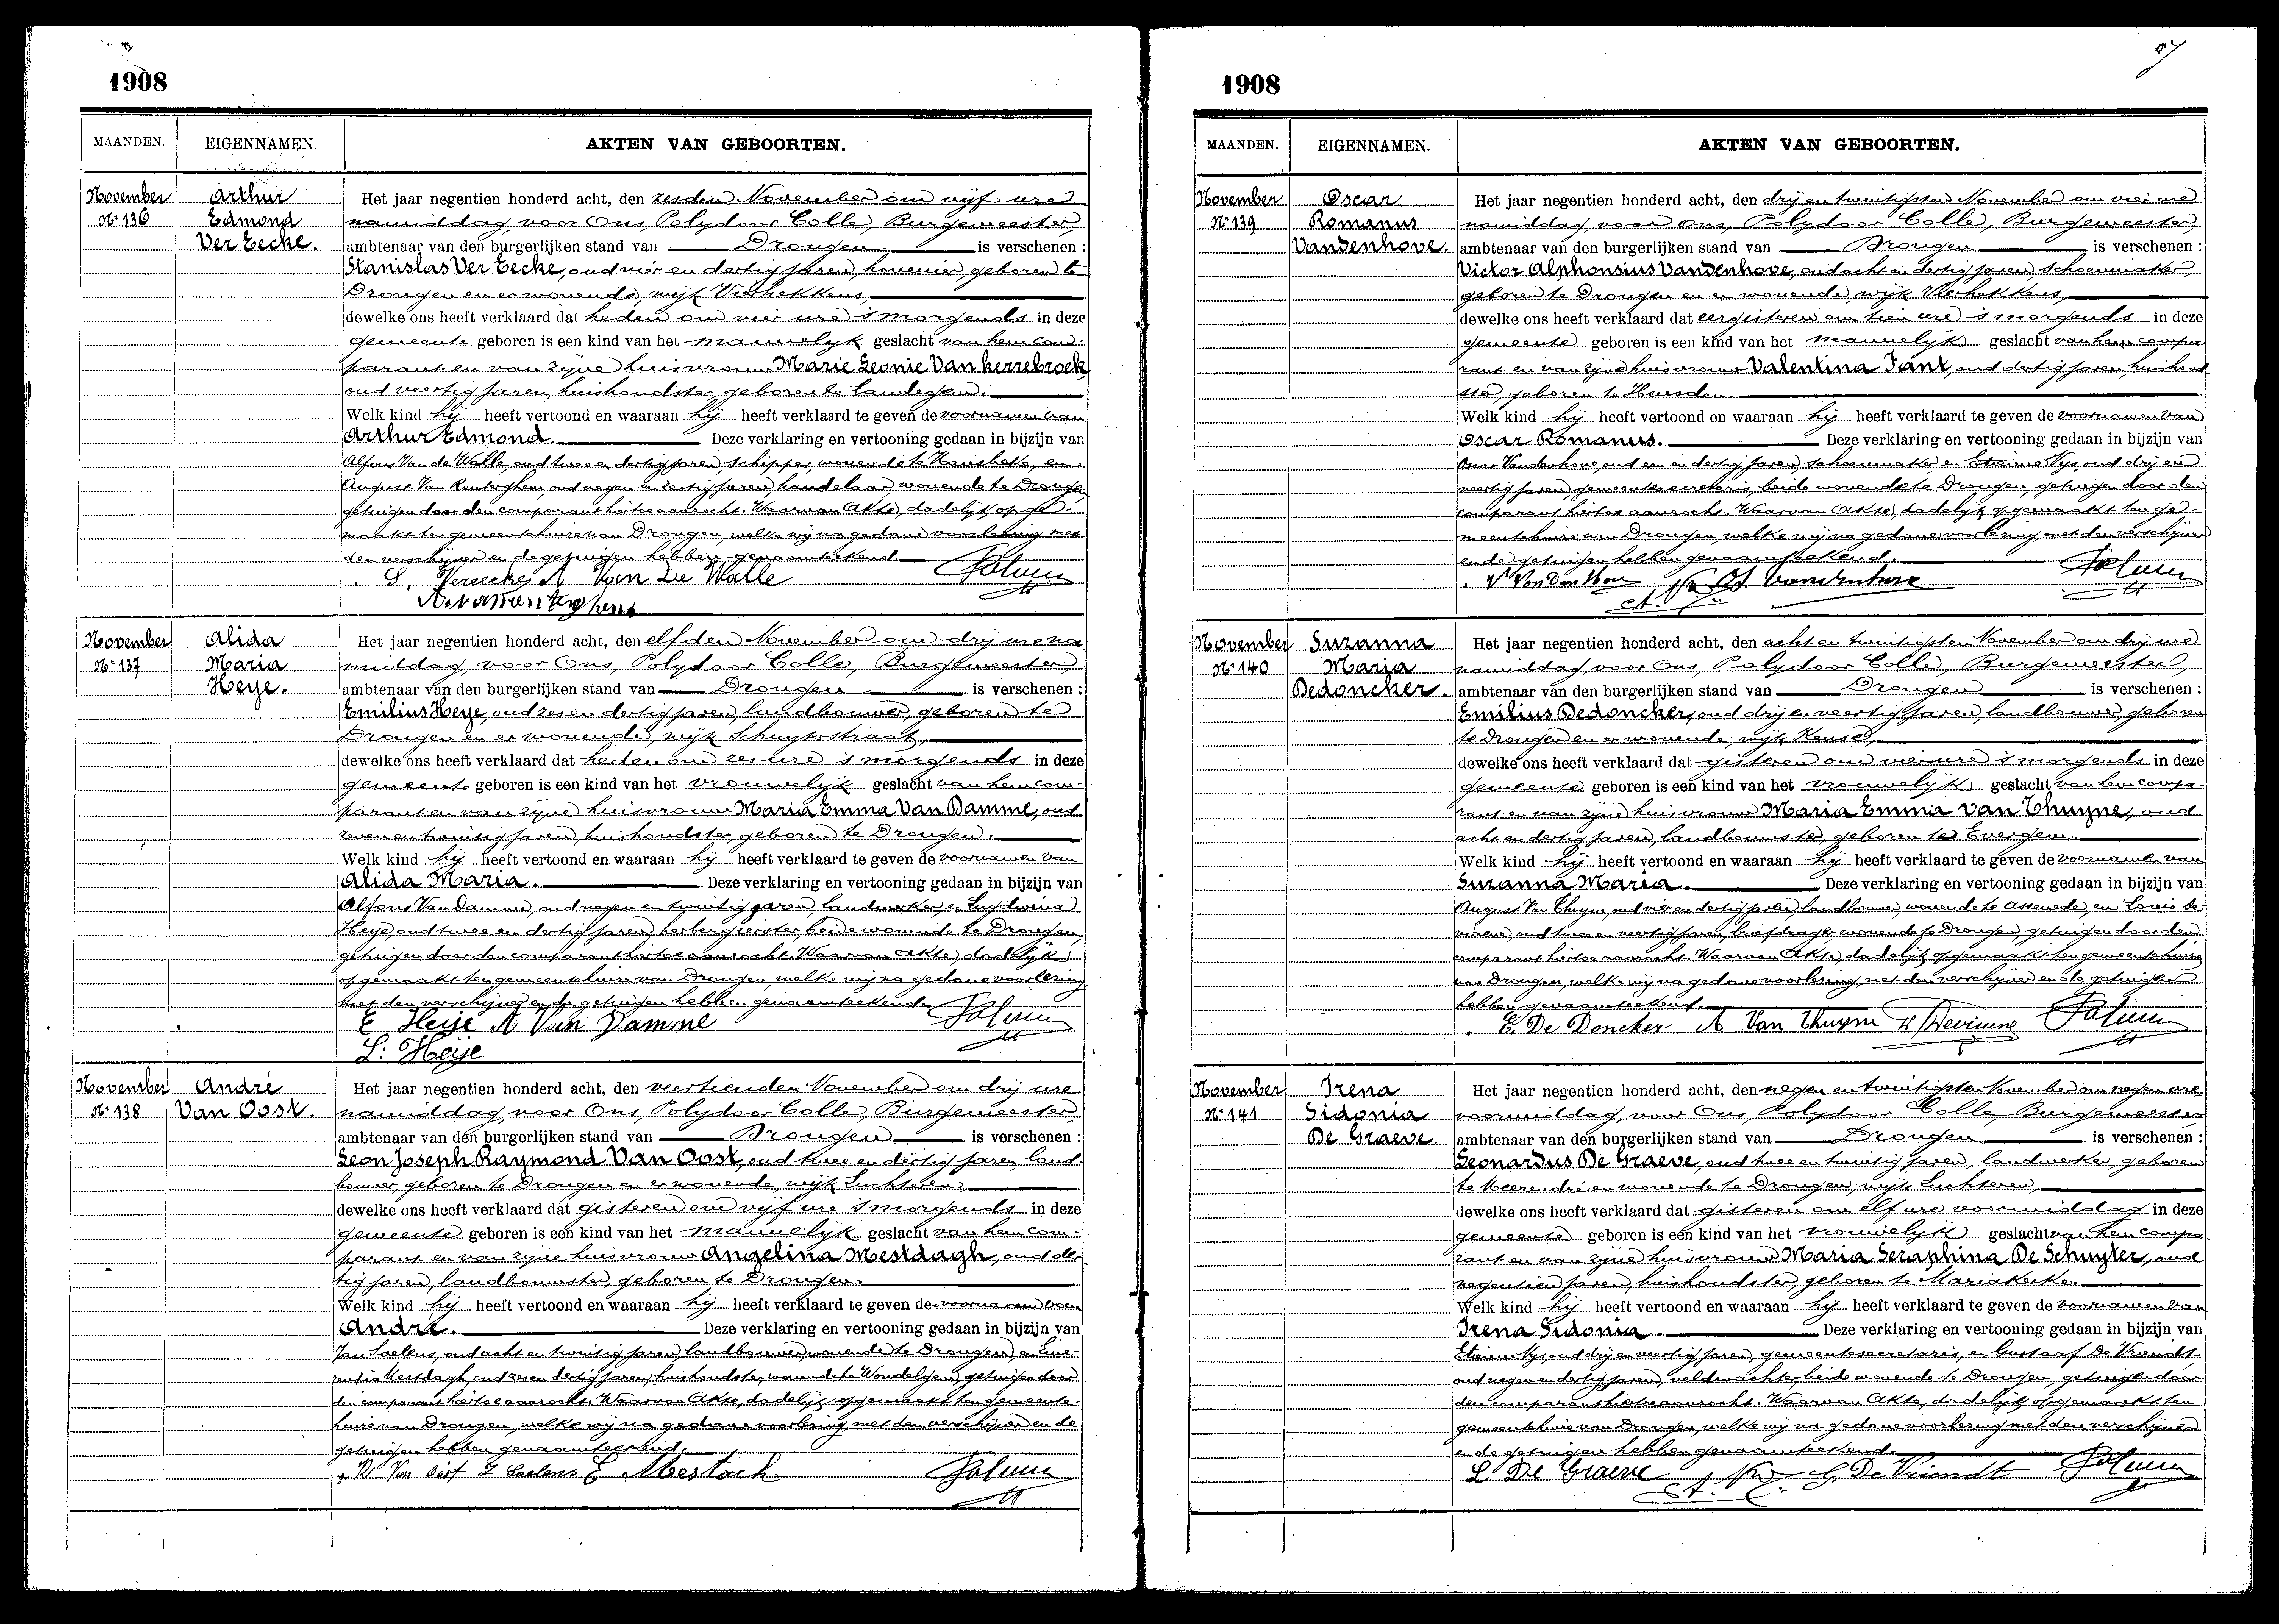 1908
MAANDEN. EIGENNAMEN. AKTEN VAN GEBOORTEN.
November Nº 136
Arthur Edmond Ver Eecke.
Het jaar negentien honderd acht, den zesden November om vijf ure
namiddag, voor Ons, Polydoor Colle, Burgemeester,
ambtenaar van den burgerlijken stand van Drongen is verschenen :
Stanislas Ver Eecke, oud vier en dertig jaren, hovenier, geboren te
Drongen en er wonende, wijk Vierhekkens,
dewelke ons heeft verklaard dat heden om vier ure 's morgends in deze
gemeente geboren is een kind van het mannelijk geslacht van hem com-
parant en van zijne huisvrouw Marie Leonie Van Kerrebroek
oud veertig jaren, huishoudster, geboren te Landegem.
Welk kind hij heeft vertoond en waaraan hij heeft verklaard te geven de voornamen van
Arthur Edmond. Deze verklaring en vertooning gedaan in bijzijn van
Alfons Van de Walle, oud twee en dertig jaren, schipper, wonende te en
August Van Renterghem, oud negen en zestig jaren, handelaar, wonende te Drongen
getuigen door den comparant hiertoe aanzocht. Waarvan Akte, dadelijk opge-
maakt ten gemeentehuize van Drongen, welke wij na gedane voorlezing met
den verschijner en de getuigen hebben genaamteekend.
S. Vereecke A Van De Walle
A. van renterghem
November Nº 137
Alida Maria Heye.
Het jaar negentien honderd acht, den elfden November om drij ure na
middag, voor Ons, Polydoor Colle, Burgemeester,
ambtenaar van den burgerlijken stand van Drongen is verschenen :
Emilius Heye, oud zes en dertig jaren, landbouwer, geboren te
Drongen en er wonende, wijk Schuytstraat,
dewelke ons heeft verklaard dat heden om zes ure 's morgends in deze
gemeente geboren is een kind van het vrouwelijk geslacht van hem com-
parant en van zijne huisvrouw Maria Emma Van Damme, oud
zeven en twintig jaren, huishoudster, geboren te Drongen.
Welk kind hij heeft vertoond en waaraan hij heeft verklaard te geven de voornamen van
Alida Maria. Deze verklaring en vertooning gedaan in bijzijn van
Alfons Van Damme, oud negen en twintig jaren, landwerker, en Lugdwina
Heye, oud twee en dertig jaren, herbergierster, beide wonende te Drongen,
getuigen door den comparant hiertoe aanzocht. Waarvan Akte, dadelijk
opgemaakt ten gemeentehuize van Drongen, welke wij na gedane voorlezing
met den verschijner en de getuigen hebben genaamteekend.
E Heije A Van Damme
L: Heije
November Nº 138
André Van Oost.
Het jaar negentien honderd acht, den veertienden November om drij ure
namiddag, voor Ons, Polydoor Colle, Burgemeester,
ambtenaar van den burgerlijken stand van Drongen is verschenen :
Leon Joseph Raymond Van Oost, oud twee en dertig jaren, land-
bouwer, geboren te Drongen en er wonende, wijk Luchteren,
dewelke ons heeft verklaard dat gisteren om vijf ure 's morgends in deze
gemeente geboren is een kind van het mannelijk geslacht van hem com-
parant en van zijne huisvrouw Angelina Mestdagh, oud der-
tig jaren, landbouwster, geboren te Drongen.
Welk kind hij heeft vertoond en waaraan hij heeft verklaard te geven de voornaam van
André. Deze verklaring en vertooning gedaan in bijzijn van
Jan oud acht en twintig jaren, landbouwer, wonende te Drongen, en
Mestdagh, oud zes en dertig jaren, huishoudster, wonende te Wondelgem, getuigen door
den comparant hiertoe aanzocht. Waarvan Akte, dadelijk opgemaakt ten gemeente-
huize van Drongen, welke wij na gedane voorlezing, met den verschijner en de
getuigen hebben genaamteekend.
Van Oost E Mestach
1908
MAANDEN. EIGENNAMEN. AKTEN VAN GEBOORTEN.
November Nº 139
Oscar Romanus Vandenhove.
Het jaar negentien honderd acht, den drij en twintigsten November om vier ure
namiddag, voor Ons, Polydoor Colle, Burgemeester,
ambtenaar van den burgerlijken stand van Drongen is verschenen :
Victor Alphonsius Vandenhove, oud acht en dertig jaren, schoenmaker,
geboren te Drongen en er wonende, wijk Vierhekkens,
dewelke ons heeft verklaard dat eergisteren om tien ure 's morgends in deze
gemeente geboren is een kind van het mannelijk geslacht van hem compa-
rant en van zijne huisvrouw Valentina Tant, oud dertig jaren, huishoud-
ster, geboren te Heusden.
Welk kind hij heeft vertoond en waaraan hij heeft verklaard te geven de voornamen van
Oscar Romanus. Deze verklaring en vertooning gedaan in bijzijn van
Oscar Vandenhove, oud een en dertig jaren, schoenmaker, en Etienne Nys, oud drij en
veertig jaren, gemeentesecretaris, beide wonende te Drongen, getuigen door den
comparant hiertoe aanzocht. Waarvan Akte, dadelijk opgemaakt ten ge-
meentehuize van Drongen, welke wij na gedane voorlezing, met den verschijner
en de getuigen hebben genaamteekend.
V Van Den Hove O. Vandenhove
November Nº 140
Suzanna Maria Dedoncker.
Het jaar negentien honderd acht, den acht en twintigsten November om drij ure
namiddag, voor Ons, Polydoor Colle, Burgemeester,
ambtenaar van den burgerlijken stand van Drongen is verschenen :
Emilius Dedoncker, oud drij en veertig jaren, landbouwer, geboren
te Drongen en er wonende, wijk Keuze,
dewelke ons heeft verklaard dat gisteren om vier ure 's morgends in deze
gemeente geboren is een kind van het vrouwelijk geslacht van hem compa-
rant en van zijne huisvrouw Maria Emma Van Thuyne, oud
acht en dertig jaren, landbouwster, geboren te Evergem.
Welk kind hij heeft vertoond en waaraan hij heeft verklaard te geven de voornamen van
Suzanna Maria. Deze verklaring en vertooning gedaan in bijzijn van
August Van Thuyne, oud vier en dertig jaren, landbouwer, wonende te Assenede, en Louis De-
viaene, oud twee en veertig jaren, briefdrager, wonende te Drongen, getuigen door den
comparant hiertoe aanzocht. Waarvan Akte, dadelijk opgemaakt ten gemeentehuize
van Drongen, welke wij na gedane voorlezing, met den verschijner en de getuigen
hebben genaamteekend.
E. De Doncker A Van Thuyne
November Nº 141
Irena Sidonia De Graeve.
Het jaar negentien honderd acht, den negen en twintigsten November om negen ure
voormiddag, voor Ons, Polydoor Colle, Burgemeester,
ambtenaar van den burgerlijken stand van Drongen is verschenen :
Leonardus De Graeve, oud twee en twintig jaren, landwerker, geboren
te Meerendré en wonende te Drongen, wijk Luchteren,
dewelke ons heeft verklaard dat gisteren om elf ure voormiddag in deze
gemeente geboren is een kind van het vrouwelijk geslacht van hem compa-
rant en van zijne huisvrouw Maria Seraphina De Schuyter, oud
negentien jaren, huishoudster, geboren te Mariakerke.
Welk kind hij heeft vertoond en waaraan hij heeft verklaard te geven de voornamen van
Irena Sidonia. Deze verklaring en vertooning gedaan in bijzijn van
Etienne Nys, oud drij en veertig jaren, gemeentesecretaris, en Gustaaf De Vriendt,
oud negen en dertig jaren, veldwachter, beide wonende te Drongen, getuigen door
den comparant hiertoe aanzocht. Waarvan Akte, dadelijk opgemaakt ten
gemeentehuize van Drongen, welke wij na gedane voorlezing met den verschijner
en de getuigen hebben genaamteekend.
L De Graeve G. De Vriendt